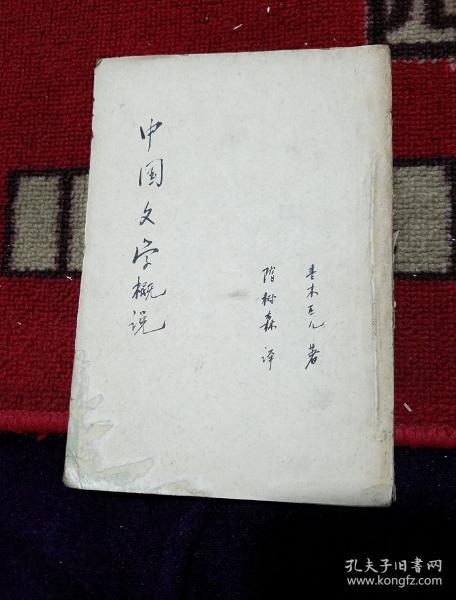 中国文学概说
青木正儿 著
隋树森 译
孔夫子旧书网
www.kongfz.com